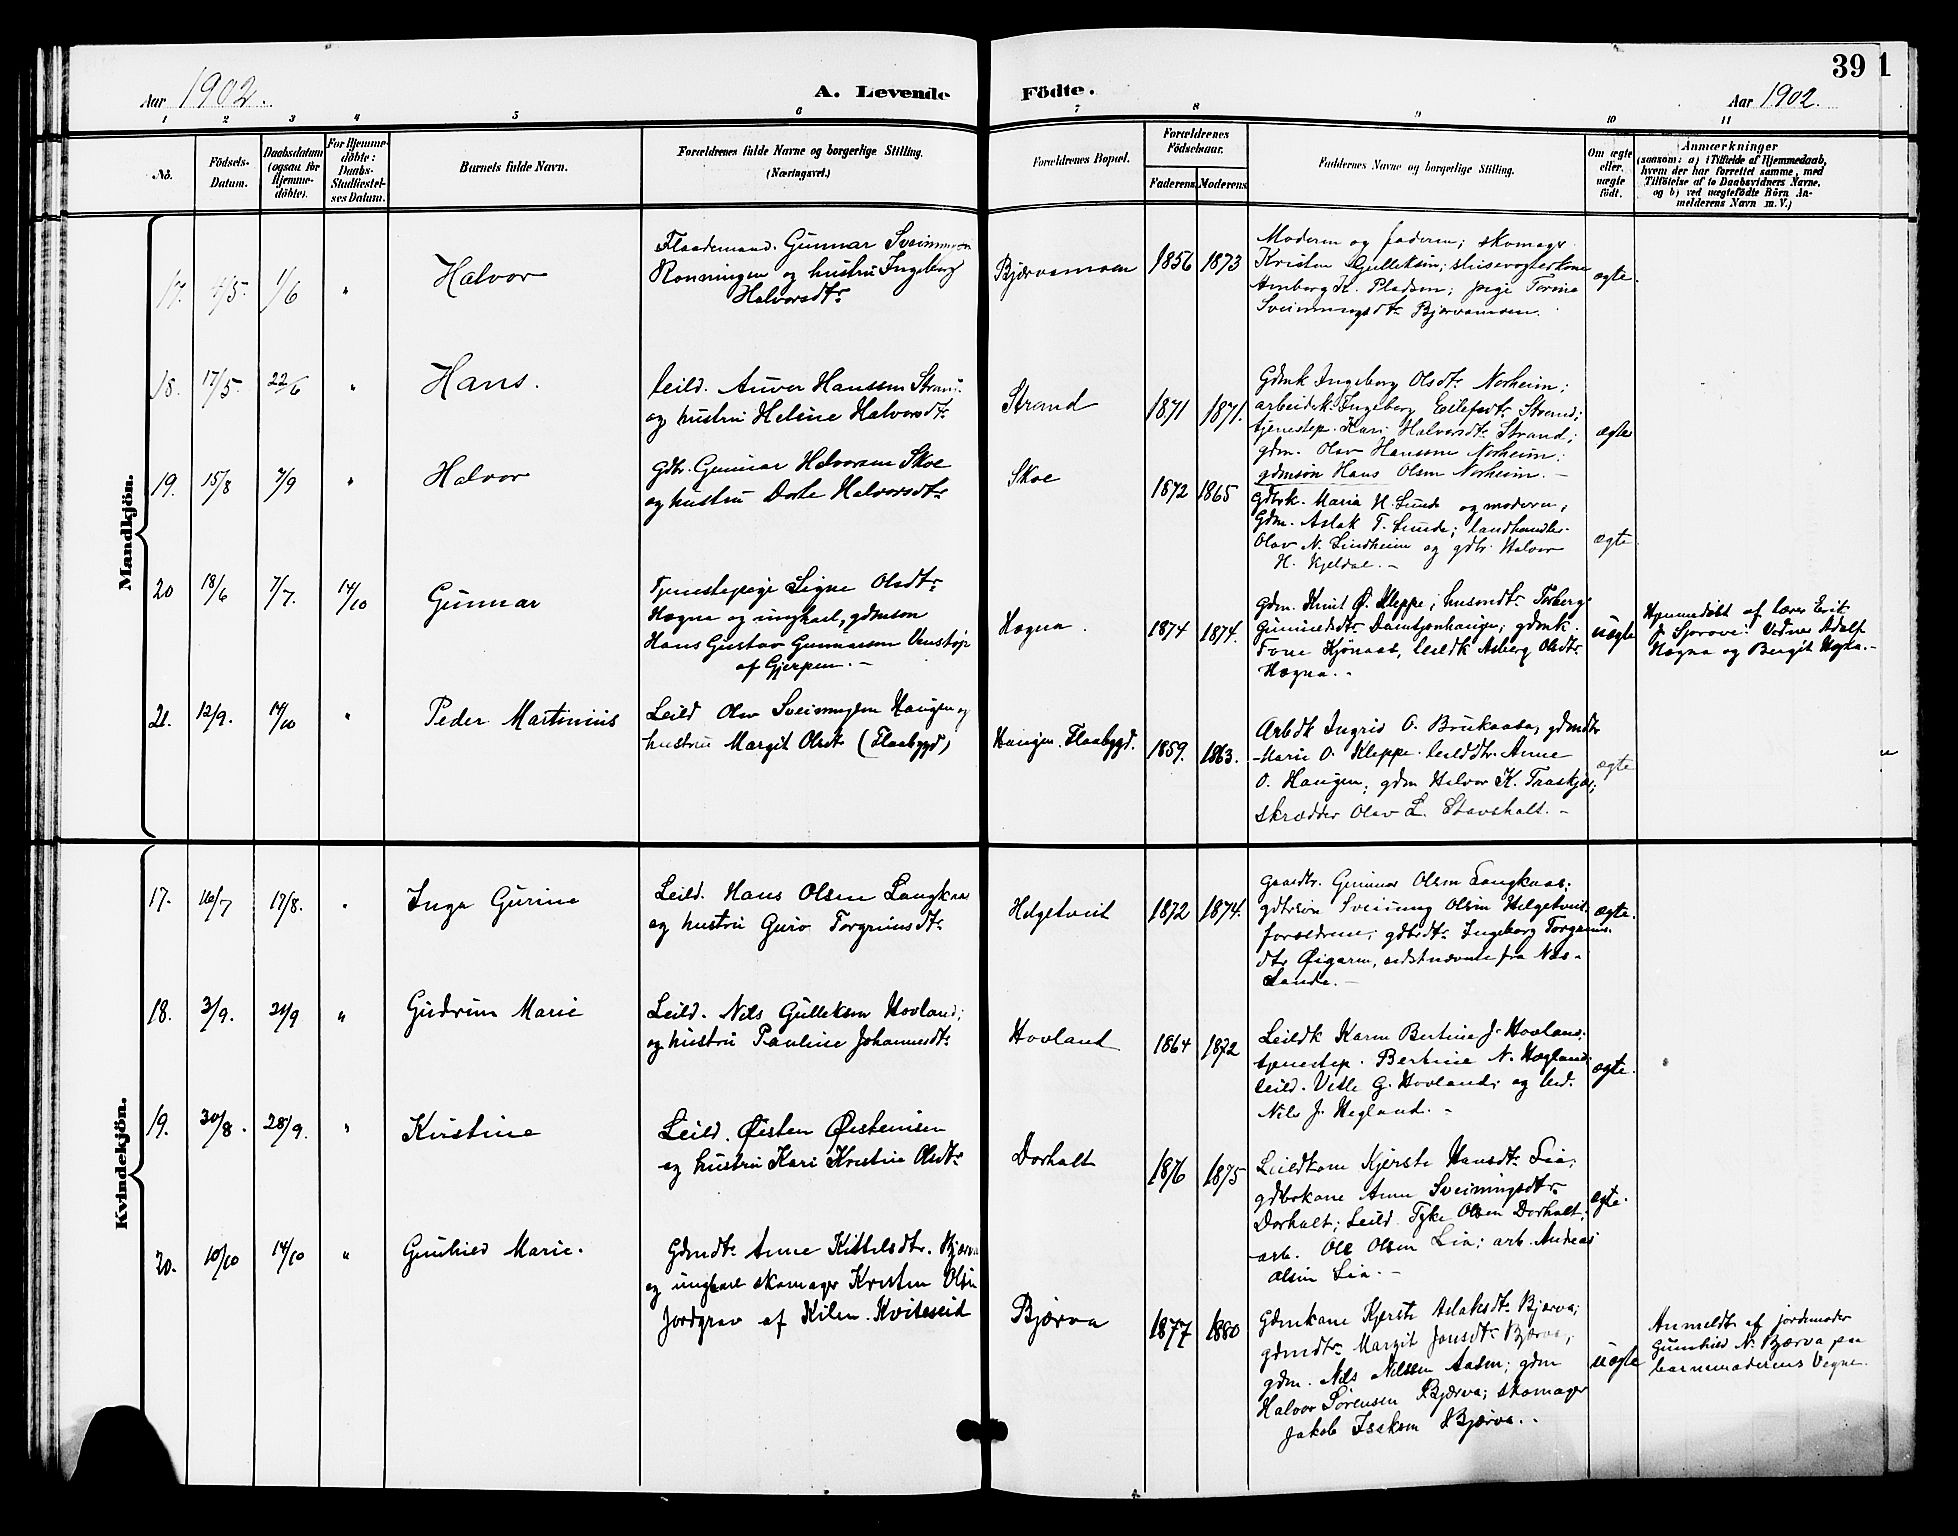 39 1
Aar 1902.
A. Levende Födte.
Aar 1902.
1 2 3 4 5 6 7 8 9 10 11
No.
Födsels-
Datum.
Daabsdatum
(ogsaa for
Hjemme-
döbte).
For Hjemme-
döbte:
Daabs-
Stadfæstel-
ses Datum.
Barnets fulde Navn.
Forældrenes fulde Navne og borgerlige Stilling.
(Næringsvei.)
Forældrenes Bopæl.
Forældrenes
Födselsaar.
Faderens Moderens
Faddernes Navne og borgerlige Stilling.
Om ægte
eller
uægte
födt.
Anmærkninger
(saasom: a) i Tilfælde af Hjemmedaab,
hvem der har forrettet samme, med
Tilföielse af to Daabsvidners Navne,
og b) ved uægtefödte Börn An-
melderens Navn m. V.)
Mandkjön.
17. 4/5. 1/6 " Halvor
Flaademand. Gunnar Sveinungsen
Rønningen og hustru Ingeborg
Halvorsdtr
Bjørvamoen 1856 1873
Moderen og faderen; skomager
Kristen Gulleksen;
Anborg K. Pladsen; pige Torine
Sveinungsdtr Bjørvamoen.
ægte.
18. 17/5. 22/6 " Hans.
leild. Anver Hanssen Strand
og hustru Heline Halvorsdtr
Strand 1871 1871.
Gdmk Ingeborg Olsdtr Norheim;
arbeidsk. Ingeborg Eilefsdtr Strand;
tjenestep. Kari Halvorsdtr Strand;
gdm. Olav Hanssen Norheim;
gdmsøn Hans Olsen Norheim. –
ægte
19. 15/8 7/9 " Halvor
Gdbr. Gunnar Halvorsen Skoe
og hustru Dorte Halvorsdtr
Skoe 1872 1865
Gdbrk. Maria H. Lunde og moderen;
Gdm. Aslak T. Lunde; landhandler
Olav N. Lindheim og gdbr. Halvor
H. Kjeldal. –
ægte.
20 18/6 7/7. 14/10 Gunnar
Tjenestepige Signe Olsdtr
Hægna og ungkarl, gdmsøn
Hans Gustav Gunnarsen Venstøp
af Gjerpen. –
Hægna. 1874 1874.
Gdm. Knut Ø. Kleppe; husmdtr Torberg
Gunnulsdtr Damtjønhaugen; gdmk.
Tone Hjønaas, leildk Asberg Olsdtr
Hægna. –
uægte
Hjemmedøbt af lærer Erik
J. Sjørove. Vidner Adolf
Hægna og Bergit Hægna. –
21. 12/9. 14/10 " Peder Martinius
Leild Olav Sveinungsen Haugen og
hustru Margit Olsdtr (Flaabygd)
Haugen. Flaabygd. 1859. 1863.
Arbdk Ingrid O. Brukaasa; gdmdtr
Marie O. Kleppe. leilddtr. Anne
O. Haugen; gdm Halvor K. Traskjær;
skrædder Olav L. Stavsholt. –
ægte
Kvindekjön.
17. 16/7 17/8. " Inga Gurine
Leild. Hans Olsen Langkaas
og hustru Guro Torgrimsdtr
Helgetveit 1872 1874.
Gaardbr. Gunnar Olsen Langkaas;
gdbrsøn Sveinung Olsen Helgetveit,
forældrene; gdbrdtr. Ingeborg Torgrims-
dtr Øigaren, sidstnævnte fra Nes-
lande. –
ægte.
18. 3/9. 21/9 " Gudrun Marie
Leild. Nils Gulleksen Hovland;
og hustru Pauline Johannesdtr
Hovland 1864 1872
Leildk Karen Bertine J. Hovland;
tjenestep. Bertine N. Hegland;
leild. Vetle G. Hovland; og led.
Nils J. Hegland. –
ægte.
19. 30/8. 28/9. " Kristine
Leild. Østen Østensen
og hustru Kari Kristine Olsdtr
Dorholt 1876 1875
Leildkone Kjerste Hansdtr Lia;
gdbrkone Anne Sveinungsdtr
Dorholt; Leild. Tyke Olsen Dorholt;
arb. Ole Olsen Lia; arb. Andreas
Olsen Lia. –
ægte.
20. 10/10 14/10 " Gunhild Marie.
Gdmdtr Anne Kittelsdtr. Bjærva
og ungkarl skomager Kristen Olsen
Jordgrav af Kilen. Kviteseid
Bjærva 1877 1880
Gdmkone Kjerste Aslaksdtr Bjærva;
gdmdtr. Margit Jonsdtr Bjærva;
gdm. Nils Nilssen Aasen; gdm
Halvor Sørensen Bjærva; skomager
Jakob Isaksen Bjærva. –
uægte
Anmeldt af jordemoder
Gunhild N. Bjærva paa
barnemoderens Vegne.